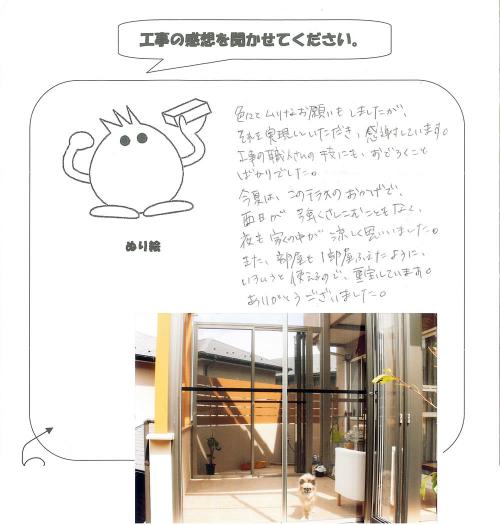 工事の感想を聞かせてください。
色々とムリなお願いもしましたが、
それを実現していただき、感謝しています。
工事の職人さんの技にも、おどろくこと
ばかりでした。
今夏は、このテラスのおかげで、
西日が強くさしこむこともなく、
夜も家の中が涼しく思いました。
また、部屋も1部屋ふえたように、
いろいろと使えるので、重宝しています。
ありがとうございました。
ぬり絵